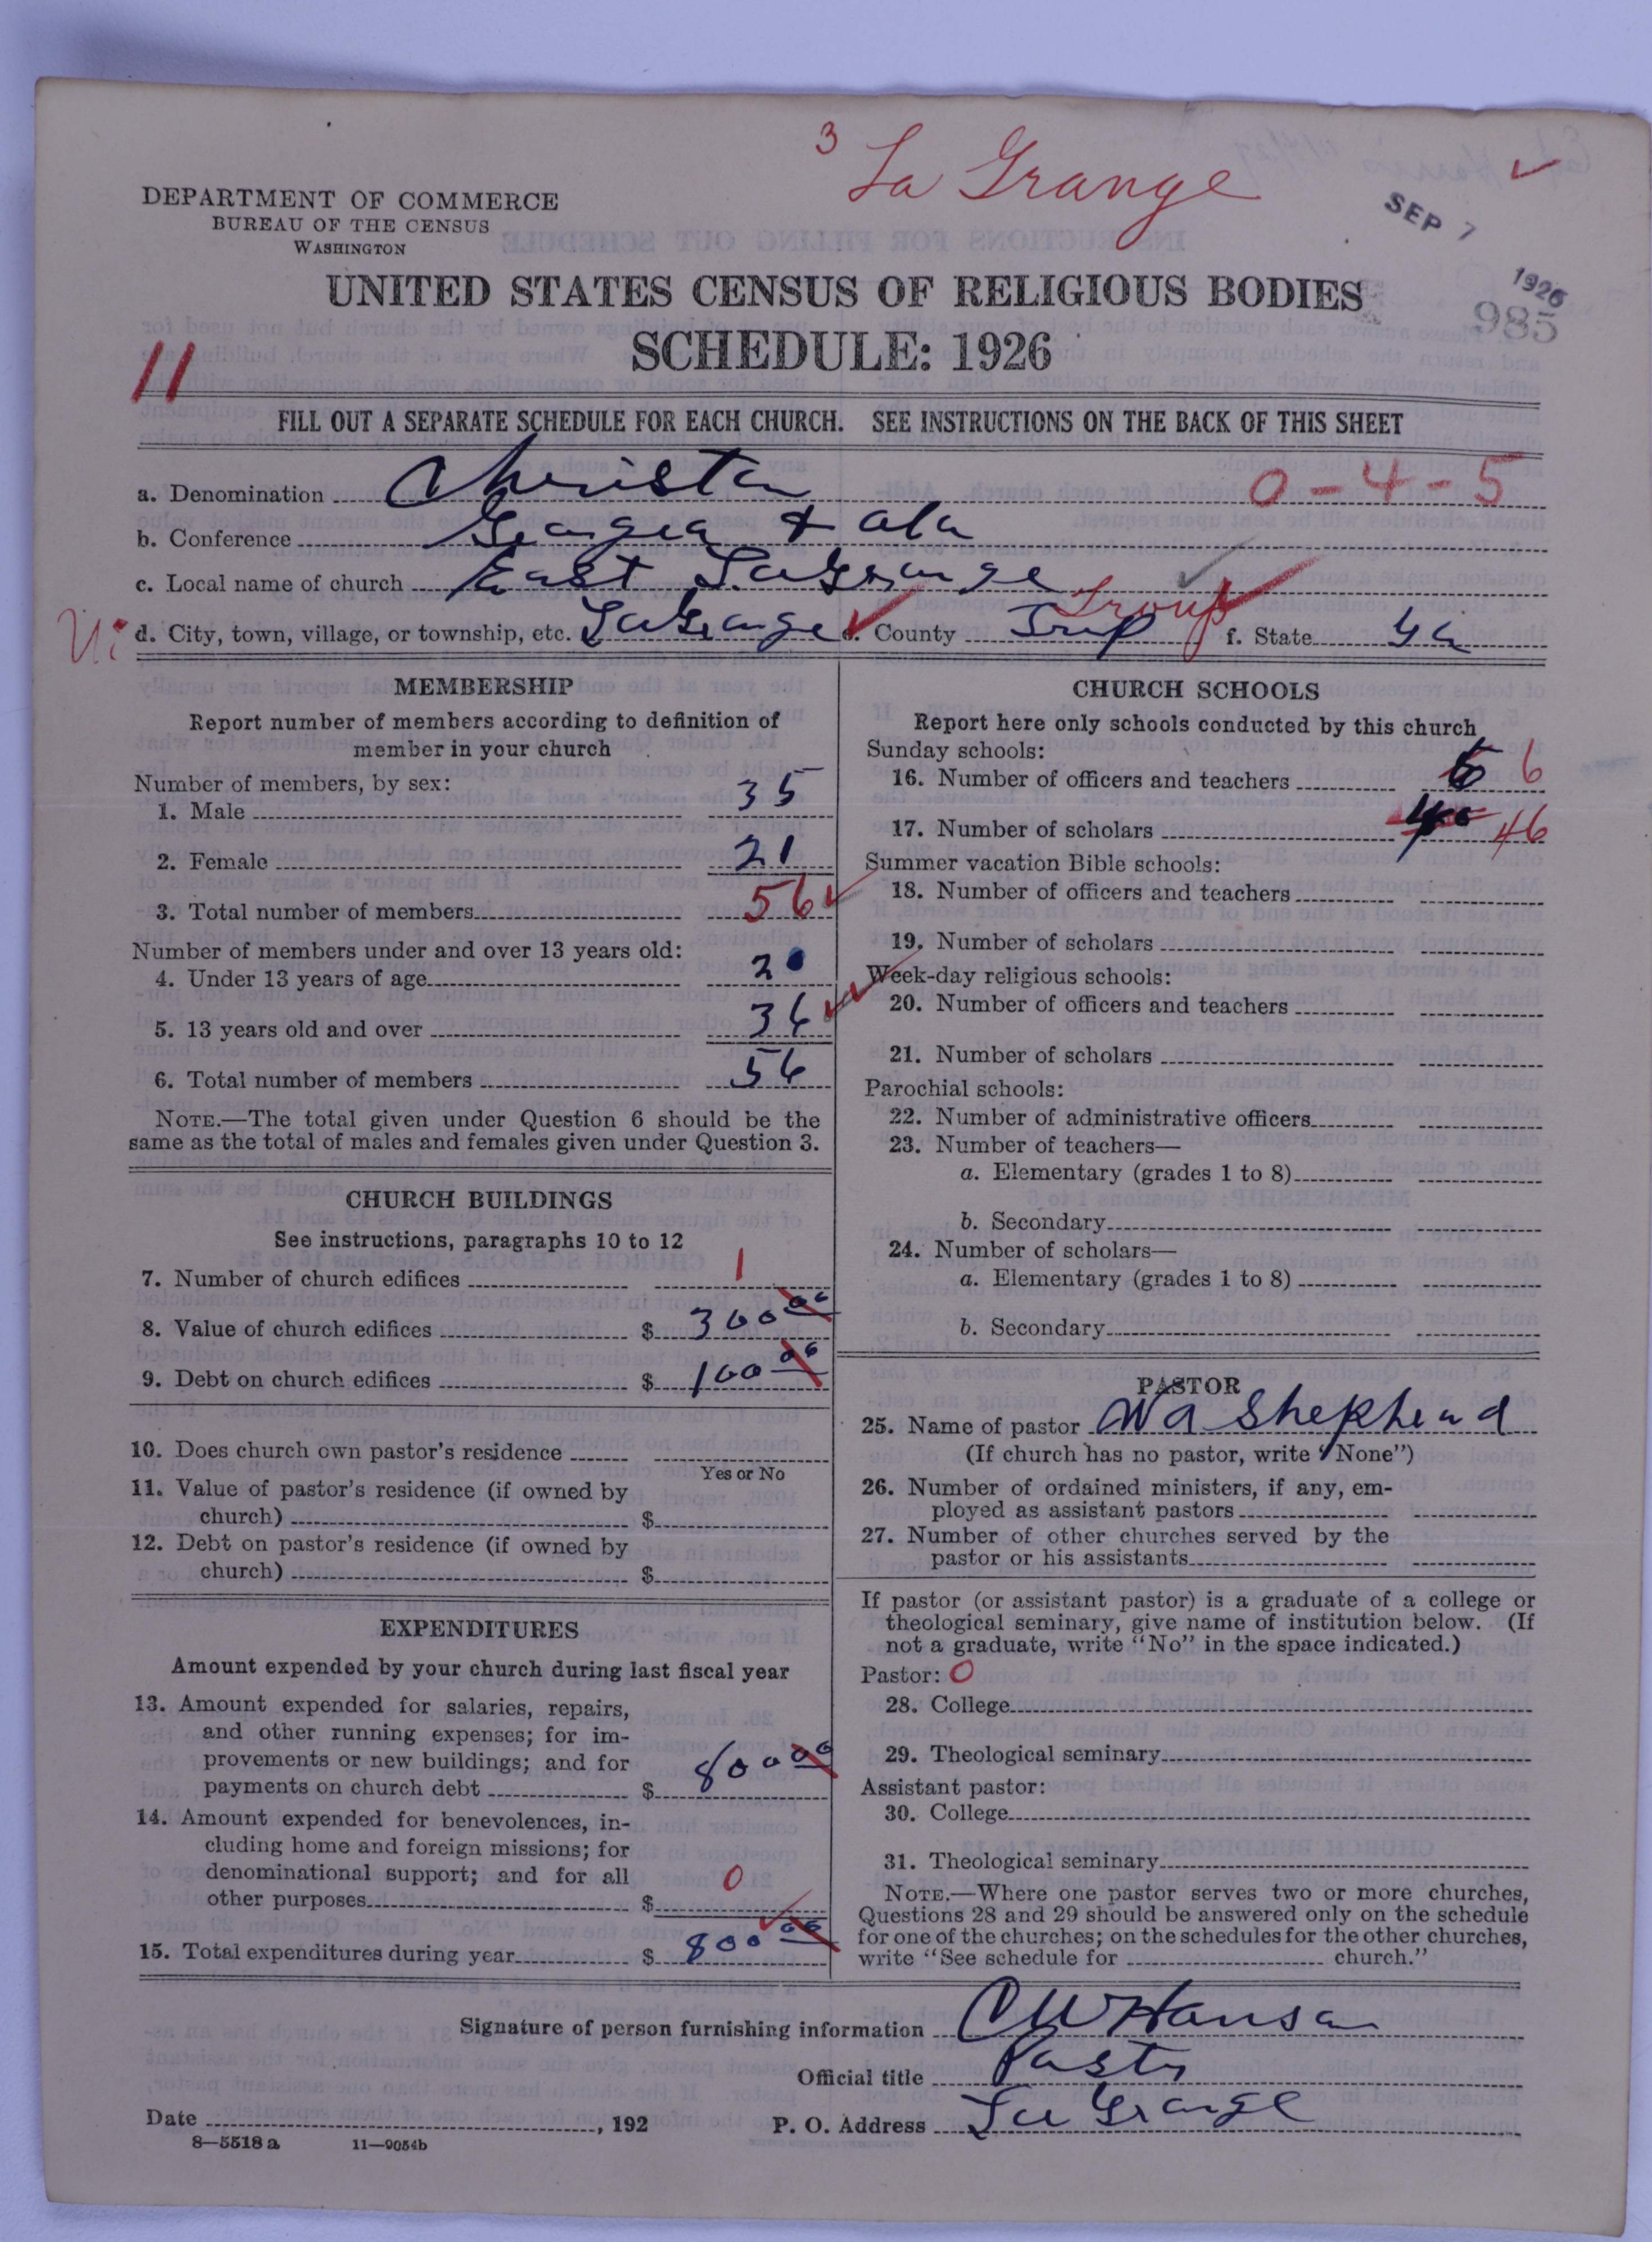 3 La Grange
SEP 7 1926
985
DEPARTMENT OF COMMERCE
BUREAU OF THE CENSUS
WASHINGTON
UNITED STATES CENSUS OF RELIGIOUS BODIES
SCHEDULE: 1926
11
FILL OUT A SEPARATE SCHEDULE FOR EACH CHURCH. SEE INSTRUCTIONS ON THE BACK OF THIS SHEET
0-4-5
a. Denomination Christan
b. Conference Georgia & Ala
c. Local name of church East LaGrange
d. City, town, village, or township, etc. LaGrange e. County Trup Troup f. State Ga
MEMBERSHIP
Report number of members according to definition of
member in your church
Number of members, by sex:
1. Male 35
2. Female 21
3. Total number of members 56
Number of members under and over 13 years old:
4. Under 13 years of age 20
5. 13 years old and over 36
6. Total number of members 56
NOTE.—The total given under Question 6 should be the
same as the total of males and females given under Question 3.
CHURCH BUILDINGS
See instructions, paragraphs 10 to 12
7. Number of church edifices 1
8. Value of church edifices $ 300 00
9. Debt on church edifices $ 100 00
10. Does church own pastor's residence
Yes or No
11. Value of pastor's residence (if owned by
church) $
12. Debt on pastor's residence (if owned by
church) $
EXPENDITURES
Amount expended by your church during last fiscal year
13. Amount expended for salaries, repairs,
and other running expenses; for im-
provements or new buildings; and for
payments on church debt $ 800 00
14. Amount expended for benevolences, in-
cluding home and foreign missions; for
denominational support; and for all
other purposes $ 0
15. Total expenditures during year $ 800 00
CHURCH SCHOOLS
Report here only schools conducted by this church
Sunday schools:
16. Number of officers and teachers 6 6
17. Number of scholars 46
Summer vacation Bible schools:
18. Number of officers and teachers
19. Number of scholars
Week-day religious schools:
20. Number of officers and teachers
21. Number of scholars
Parochial schools:
22. Number of administrative officers
23. Number of teachers—
a. Elementary (grades 1 to 8)
b. Secondary
24. Number of scholars—
a. Elementary (grades 1 to 8)
b. Secondary
PASTOR
25. Name of pastor W A Shepherd
(If church has no pastor, write "None")
26. Number of ordained ministers, if any, em-
ployed as assistant pastors
27. Number of other churches served by the
pastor or his assistants
If pastor (or assistant pastor) is a graduate of a college or
theological seminary, give name of institution below. (If
not a graduate, write "No" in the space indicated.)
Pastor: 0
28. College
29. Theological seminary
Assistant pastor:
30. College
31. Theological seminary
NOTE.—Where one pastor serves two or more churches,
Questions 28 and 29 should be answered only on the schedule
for one of the churches; on the schedules for the other churches,
write "See schedule for church."
Signature of person furnishing information C W Hanson
Official title Pastr
Date , 192 P. O. Address La Grange
8—5518 a 11—9054b